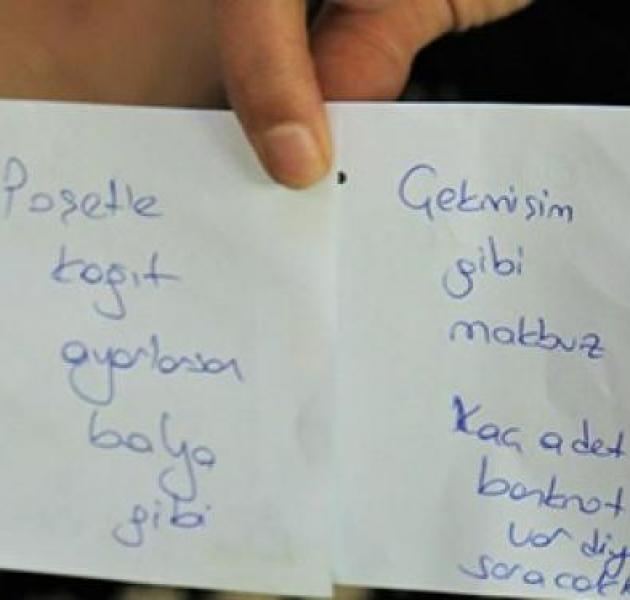 Poşetle
kağıt
ayarlasan
balya
gibi
Çekmişim
gibi
makbuz
Kaç adet
banknot
var diy
soracak